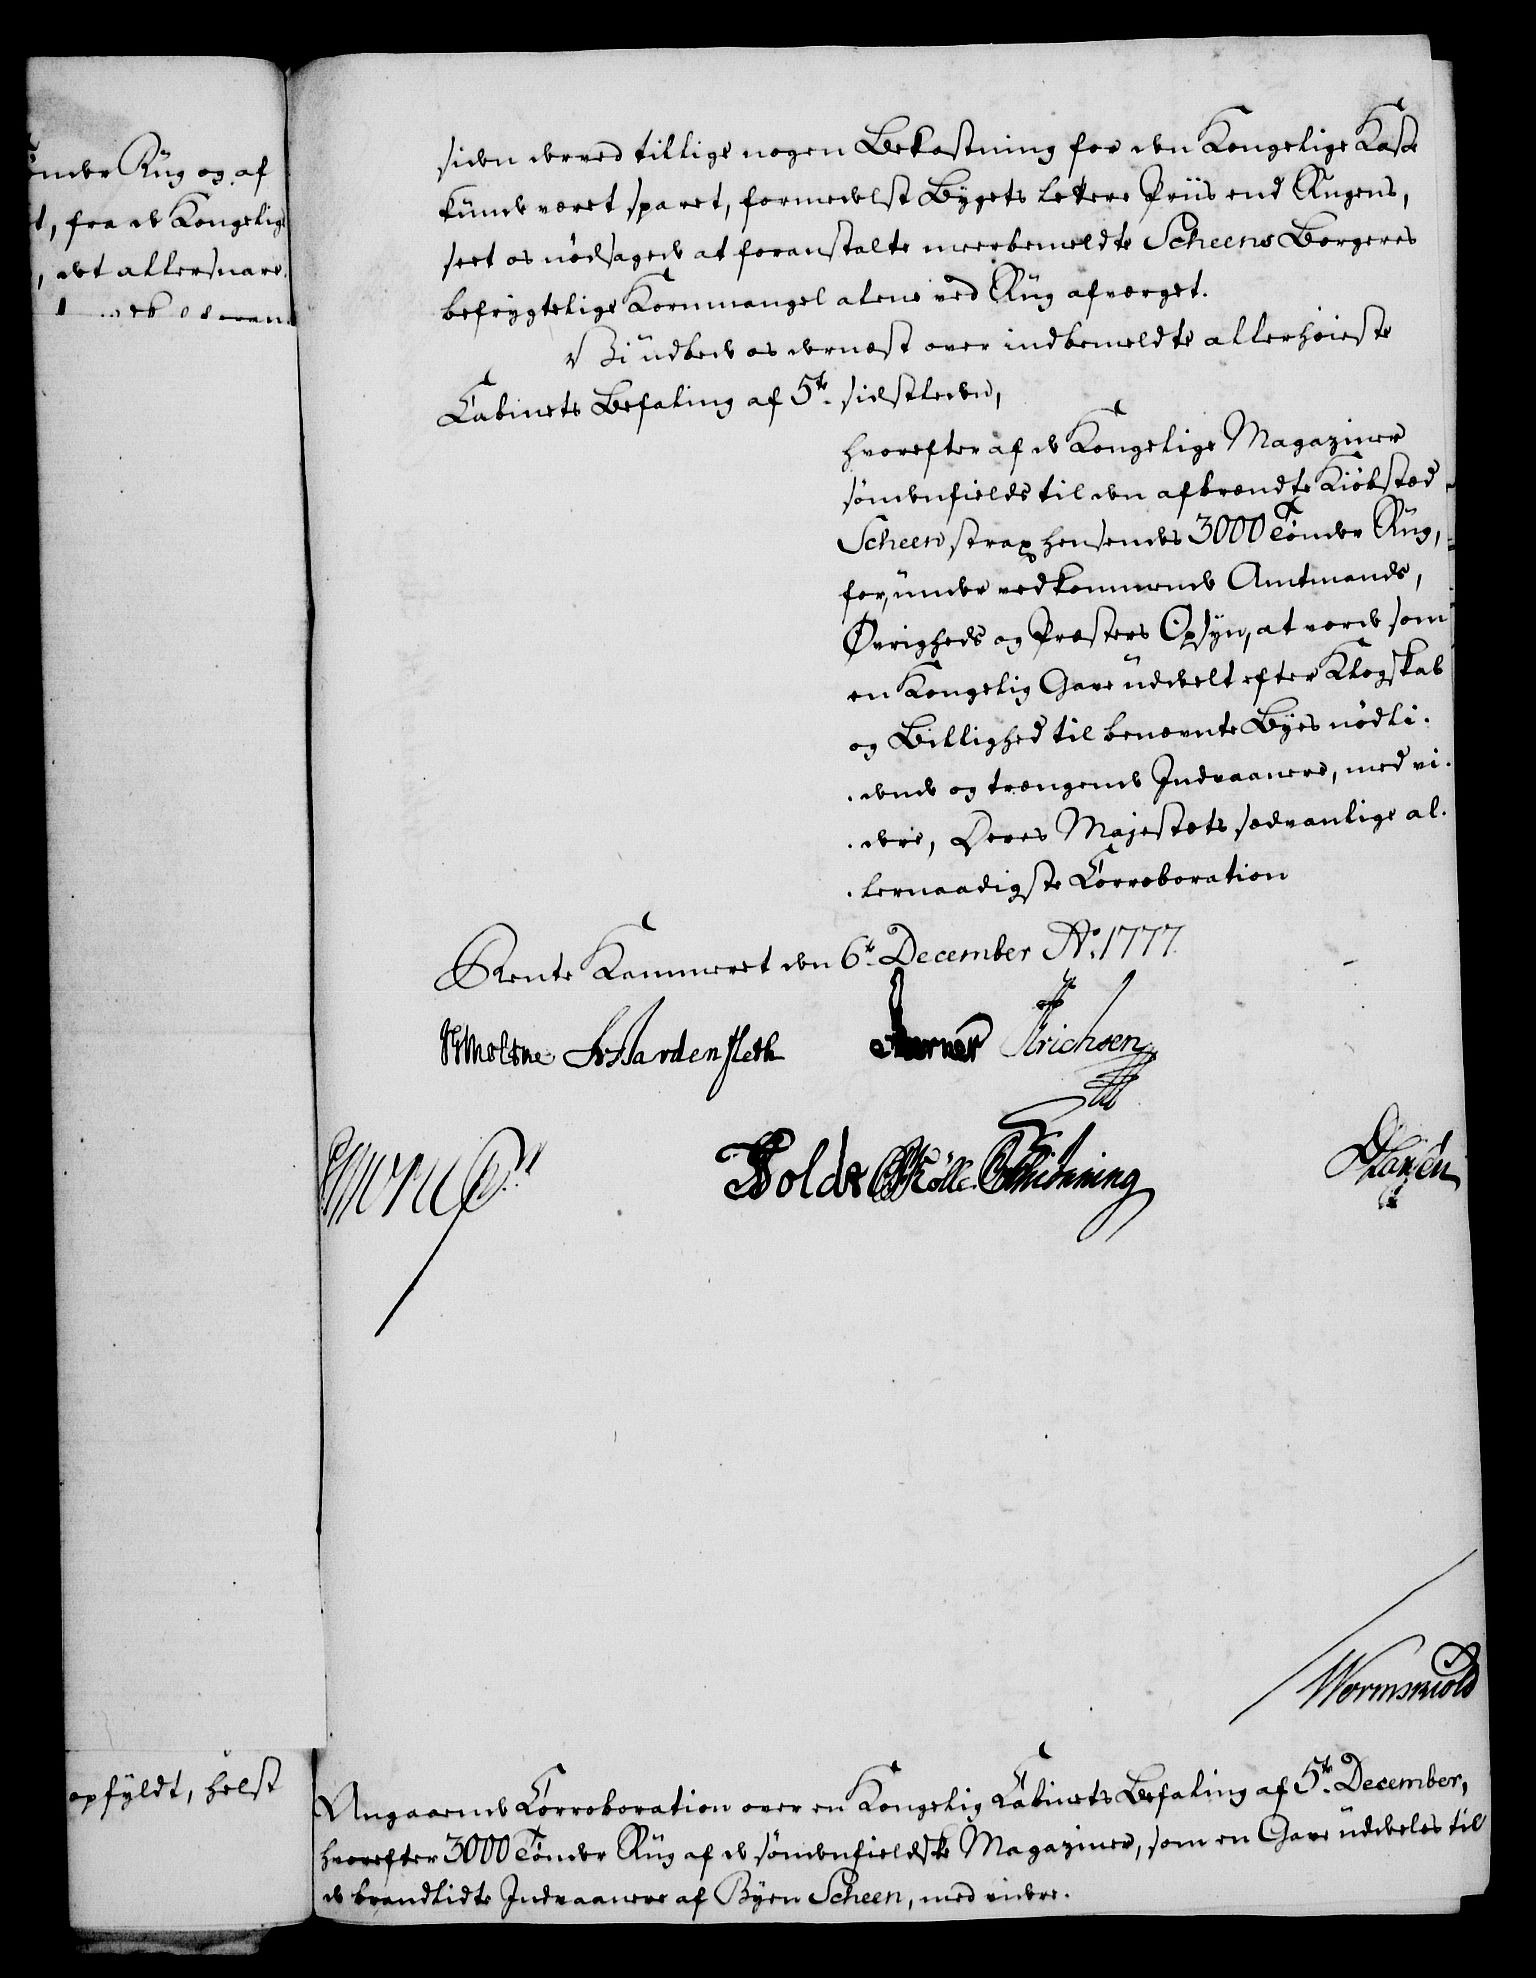 Tønder Rüg og af
t, fra de Kongelig
, det allersnare
opfyldt, helst
siden derved tillige nogen Bekostning for den Kongelige Kasse
kunde været sparet, formedelst Bygets lettere Priis end Rugens,
seet os nødsagede at foranstalte meerbemeldte Scheens Borgeres
befrygtelige Kornmangel alene ved Rüg afværget.
Vi üdbede os dernæst over indbemeldte allerhöieste
Cabinets Befaling af 5te sidstleden,
hvorefter af de Kongelige Magaziner
søndenfields til den afbrændte Kiøbstæd
Scheen strax hensendes 3000 Tønder Rüg,
for, ünder vedkommende Amtmands,
Øvrigheds og Præsters Opsÿn, at vorde som
en Kongelig Gave üddeelt efter Klogskab
og Billighed til benævnte Byes nødli-
-dende og trængende Indvaanere, med vi-
-dere, Deres Majestæts sædvanlige al-
-lernaadigste Corroboration
Rente Kammeret den 6te December Ao. 1777.
Moltke Hardenfleth Erichsen
Holde Müller Schiønning
Wormskiold
Angaaende Corroboration over en Kongelig Cabinets Befaling af 5te December,
hvorefter 3000 Tønder Rüg af de søndenfieldske Magaziner, som en Gave üddeles til
de brandlidte Indvaanere af Byen Scheen, med videre.